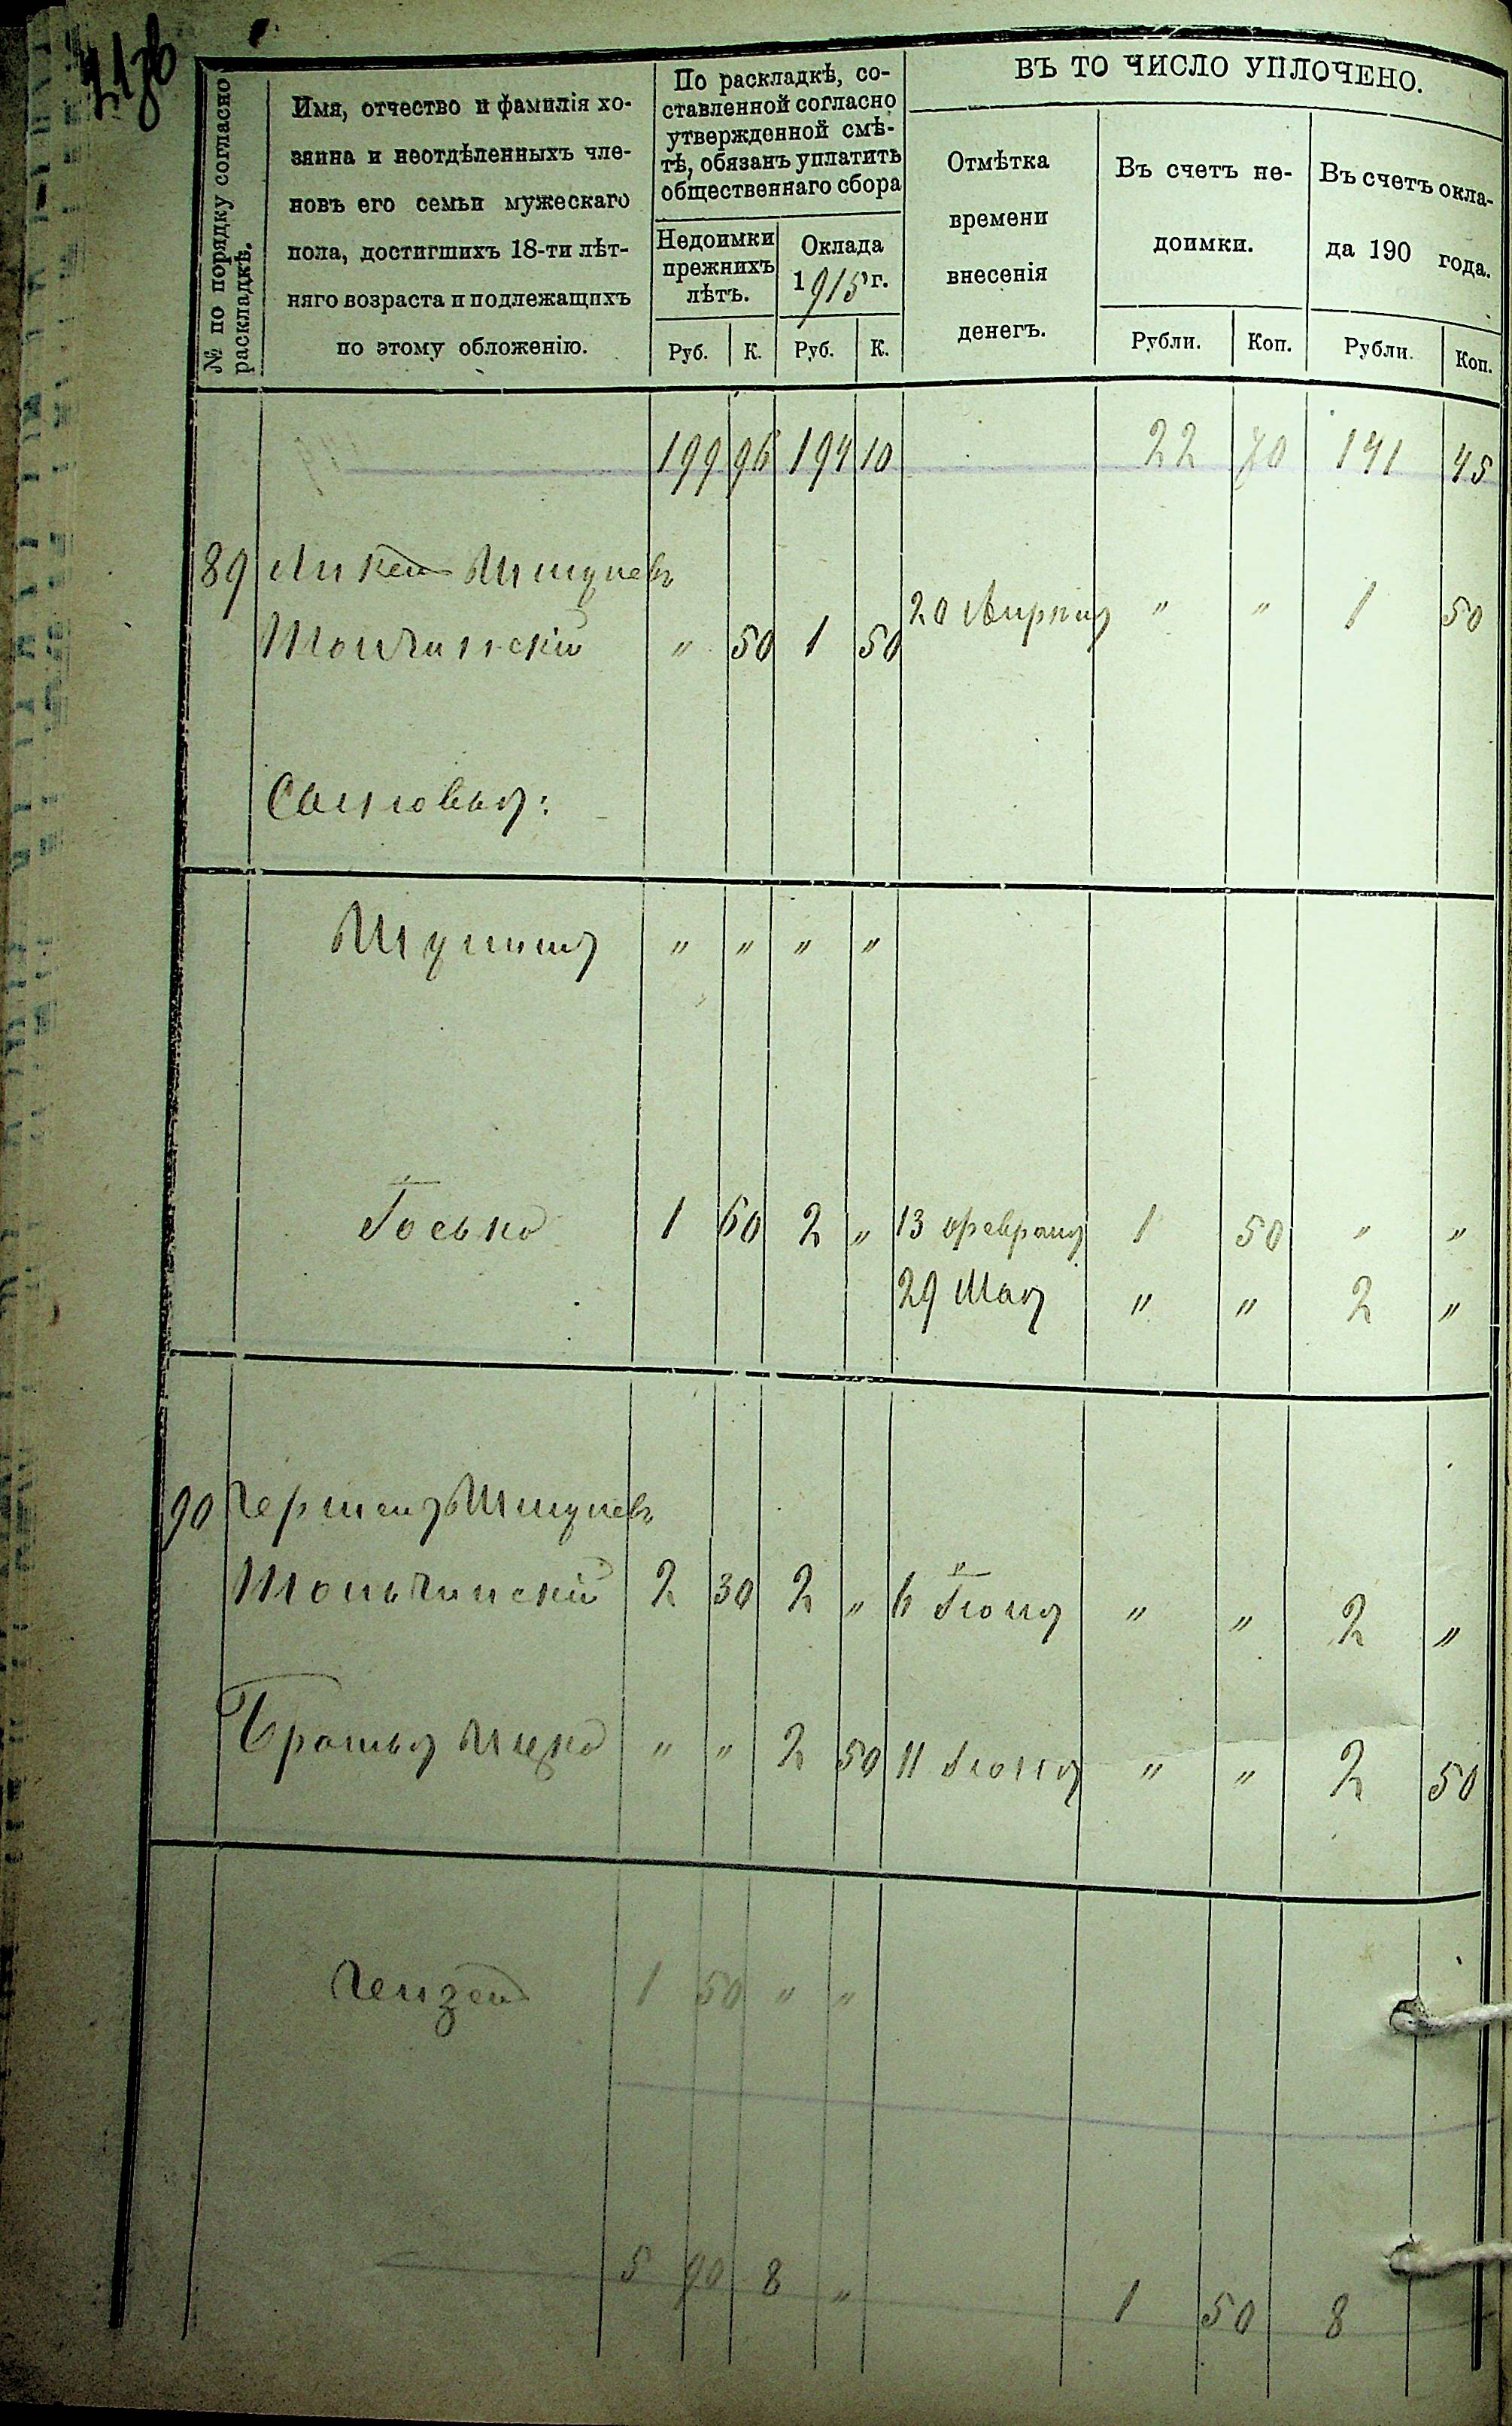 № по порядку согласно раскладкѣ.
Имя, отчество и фамилія хо-
зяина и неотдѣленныхъ чле-
новъ его семьи мужескаго
пола, достигшихъ 18-ти лѣт-
няго возраста и подлежащихъ
по этому обложенію.
По раскладкѣ, со-
ставленной согласно
утвержденной смѣ-
тѣ, обязанъ уплатить
общественнаго сбора
Недоимки
прежнихъ
лѣтъ.
Оклада
1915 г.
Руб. К. Руб. К.
ВЪ ТО ЧИСЛО УПЛОЧЕНО.
Отмѣтка
времени
внесенія
денегъ.
Въ счетъ не-
доимки.
Рубли. Коп.
Въ счетъ окла-
да 190 года.
Рубли. Коп.
199 96 194 10 22 70 191 45
89
" 50 1 50 20 Апрѣля " " 1 50
Сыновья:
" " " "
Іосько 1 60 2 " 13 февраля 1 50 " "
29 Мая " " 2 "
90 Гершенъ
2 30 2 " 6 Іюня " " 2 "
Братья Ицко " " 2 50 11 Іюня " " 2 50
1 50 " "
5 90 8 " 1 50 8